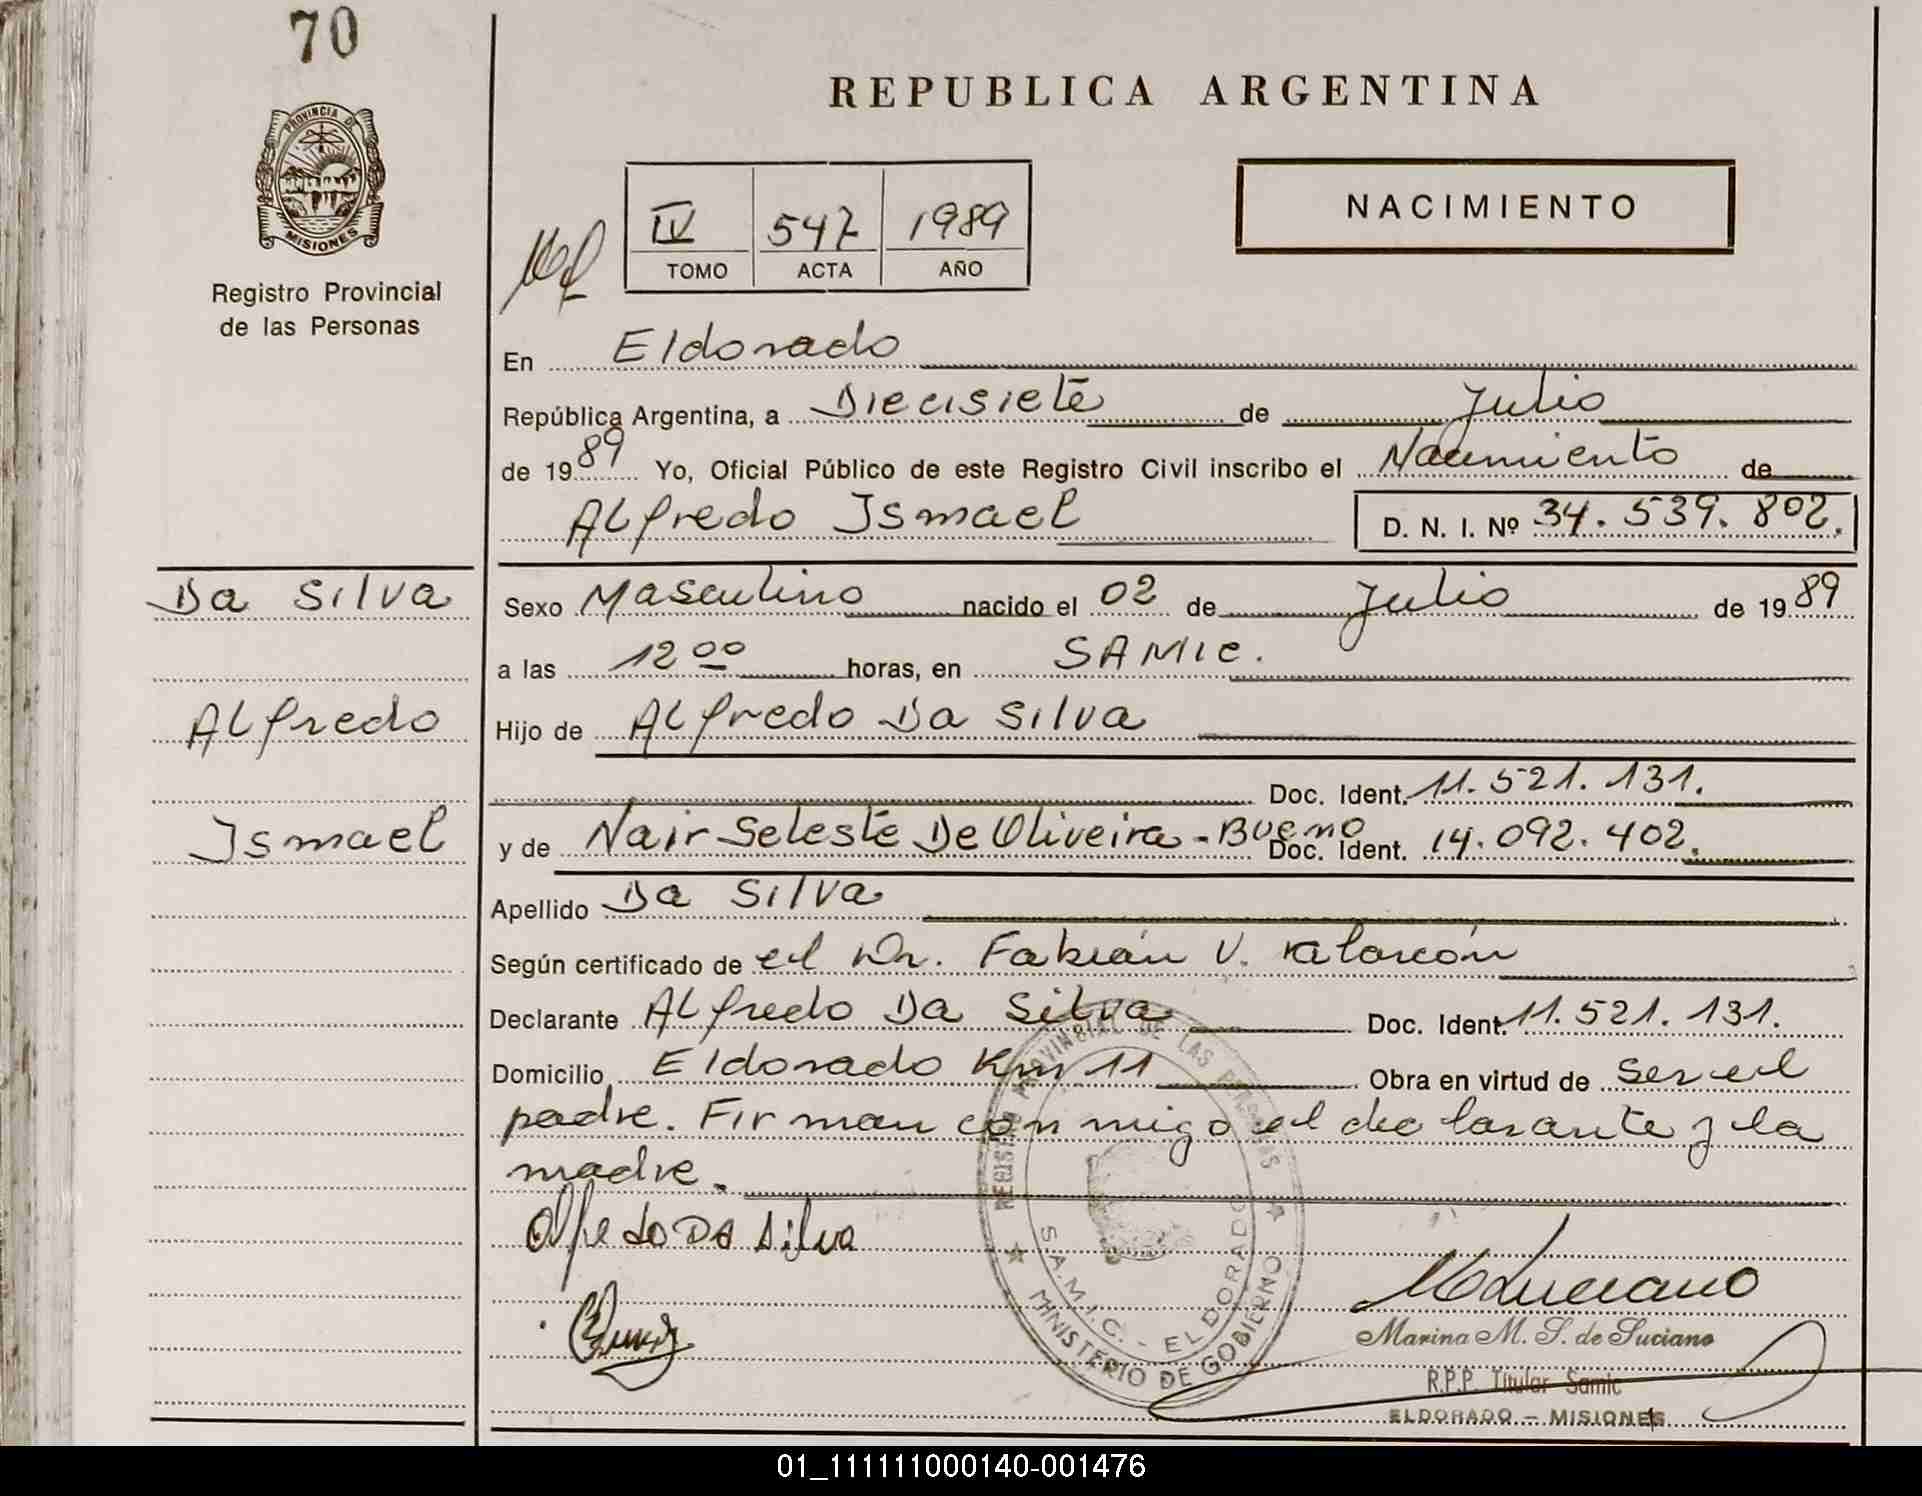 70
REPUBLICA ARGENTINA
PROVINCIA DE
MISIONES
Registro Provincial
de las Personas
IV 547 1989
TOMO ACTA AÑO
NACIMIENTO
En Eldorado
República Argentina, a Diecisiete de Julio
de 1989 Yo, Oficial Público de este Registro Civil inscribo el Nacimiento de
Alfredo Ismael D. N. I. Nº 34.539.802.
Da Silva
Alfredo
Ismael
Sexo Masculino nacido el 02 de Julio de 1989
a las 12 00 horas, en SAMIC.
Hijo de Alfredo Da Silva
Doc. Ident. 11.521.131.
y de Nair Seleste De Oliveira - Bueno Doc. Ident. 14.092.402.
Apellido Da Silva
Según certificado de el Dr. Fabián V. Alarcón
Declarante Alfredo Da Silva Doc. Ident. 11.521.131.
Domicilio Eldorado Km 11 Obra en virtud de ser el
padre. Firman conmigo el declarante y la
madre.
Alfredo Da Silva
REGISTRO PROVINCIAL DE LAS PERSONAS
S.A.M.I.C. - ELDORADO
MINISTERIO DE GOBIERNO
Marina M. S. de Luciano
R.P.P. Titular Samic
ELDORADO - MISIONES
01_111111000140-001476